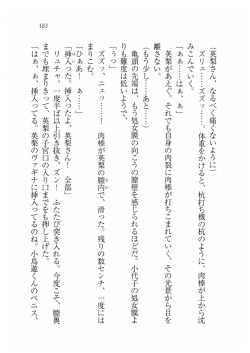 183
(英梨さん、なるべく痛くないように)
ズリュ……ズズッ……。体重をかけると、杭打ち機の杭のように、肉棒が上から沈みこんでいく。
「あぁ……はぁぁ、あ」
英梨があえぐ。それでも自身の肉裂に肉棒が打ちこまれていく、その光景から目を離さない。
(もう少し……あと……)
亀頭の先端は、もう処女膜の向こうの膣壁を感じられるほどだ。小代子の処女膜よりも難度は低いようで、
「うっ」
ズズッ、ニュッ……。肉棒が英梨の膣内で、滑った。残りの数センチ、一度にはまりこむ。
「ひぁあ! ぁ……」
「挿入った、挿入ったよ、英梨さん! 全部」
リュチャッ、一度半ば以上引き抜き、ズン! ふたたび突き入れる。今度こそ、膣奥までも埋まりきって、英梨の子宮口の入り口までをも押し上げた。
「はぁ、ぁ、挿入ってる、英梨のヴァギナに挿入ってるのね。小鳥遊くんのペニス、